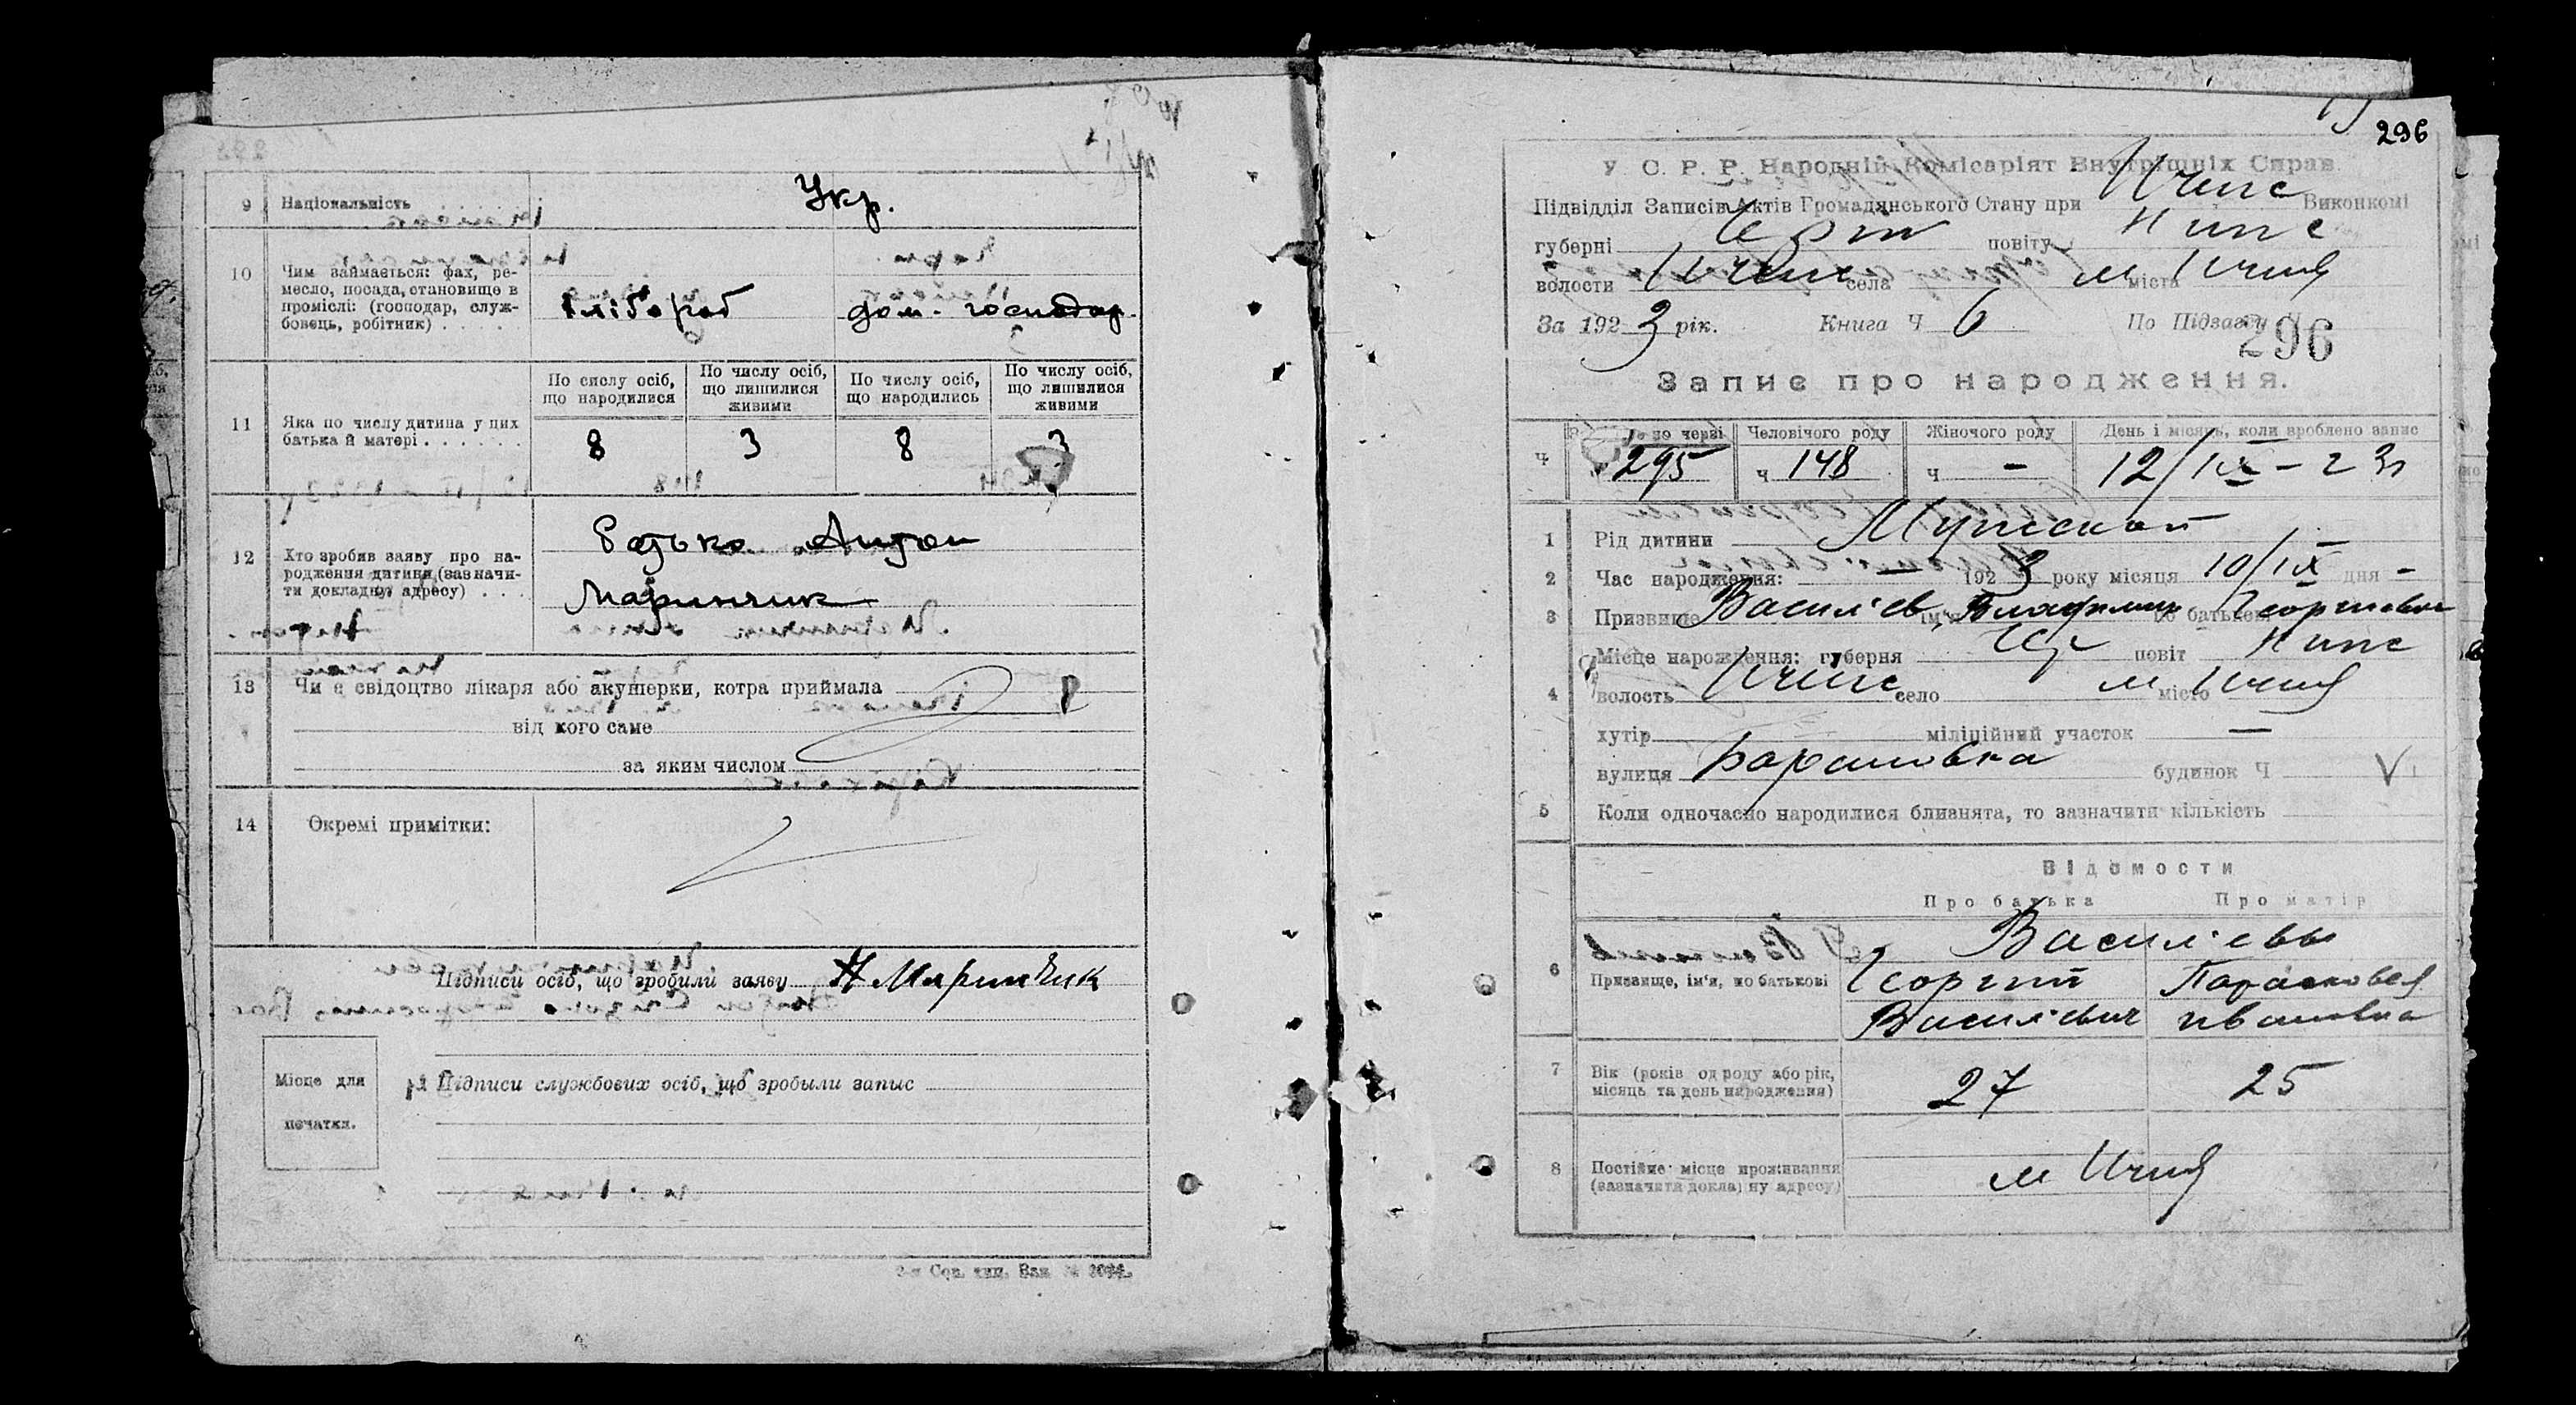 9 Національність . . . . . Укр.
10 Чим займається: фах, ре-
месло, посада, становище в
проміслі: (господар, служ-
бовець, робітник) . . . .
хлібороб дом. господар.
По числу осіб, що народилися
По числу осіб, що лишилися живими
По числу осіб, що народились
По числу осіб, що лишилися живими
11 Яка по числу дитина у цих
батька й матері . . . . . .
8 3 8 3
12 Хто зробив заяву про на-
родження дитини (зазначи-
ти докладну адресу) . . .
Батько Антон
Маринчик
13 Чи є свідоцтво лікаря або акушерки, котра приймала
від кого саме
за яким числом
14 Окремі примітки:
Підписи осіб, що зробили заяву А Маринчик
Місце для
печатки.
Підписи службових осіб, що зробыли запыс
296
У. С. Р. Р. Народній Комісаріят Внутрішніх Справ.
Підвідділ Записів Актів Громадянського Стану при Ичнс Виконкомі
губерні Черн повіту Нипс
волости Ичнс села м міста Ичня
За 1923 рік. Книга Ч 6 По Підзагсу Ч
296
Запис про народження.
по черзі Человічого роду Жіночого роду День і місяць, коли вроблено запис
Ч 295 ч 148 ч — 12/IX – 23
1 Рід дитини Мужской
2 Час народження: — 1923 року місяця 10/IX дня –
3 Призвище Василієв ім'я Владимир по батькові Георгиевич
4 Місце нарождення: губерня повіт Нипс
волость Ичнс село м місто Ичня
хутір міліційний участок —
вулиця Барановка будинок Ч
5 Коли одночасно народилися близнята, то зазначити кількість
Відомости
Про батька Про матір
Василієвы
6 Призвище, ім'я, по батькові
Георгий Парасковея
Василієвич Ивановна
7 Вік (років од роду або рік,
місяць та день народження)
27 25
8 Постійне місце проживання
(зазначити докладну адресу)
м Ичня